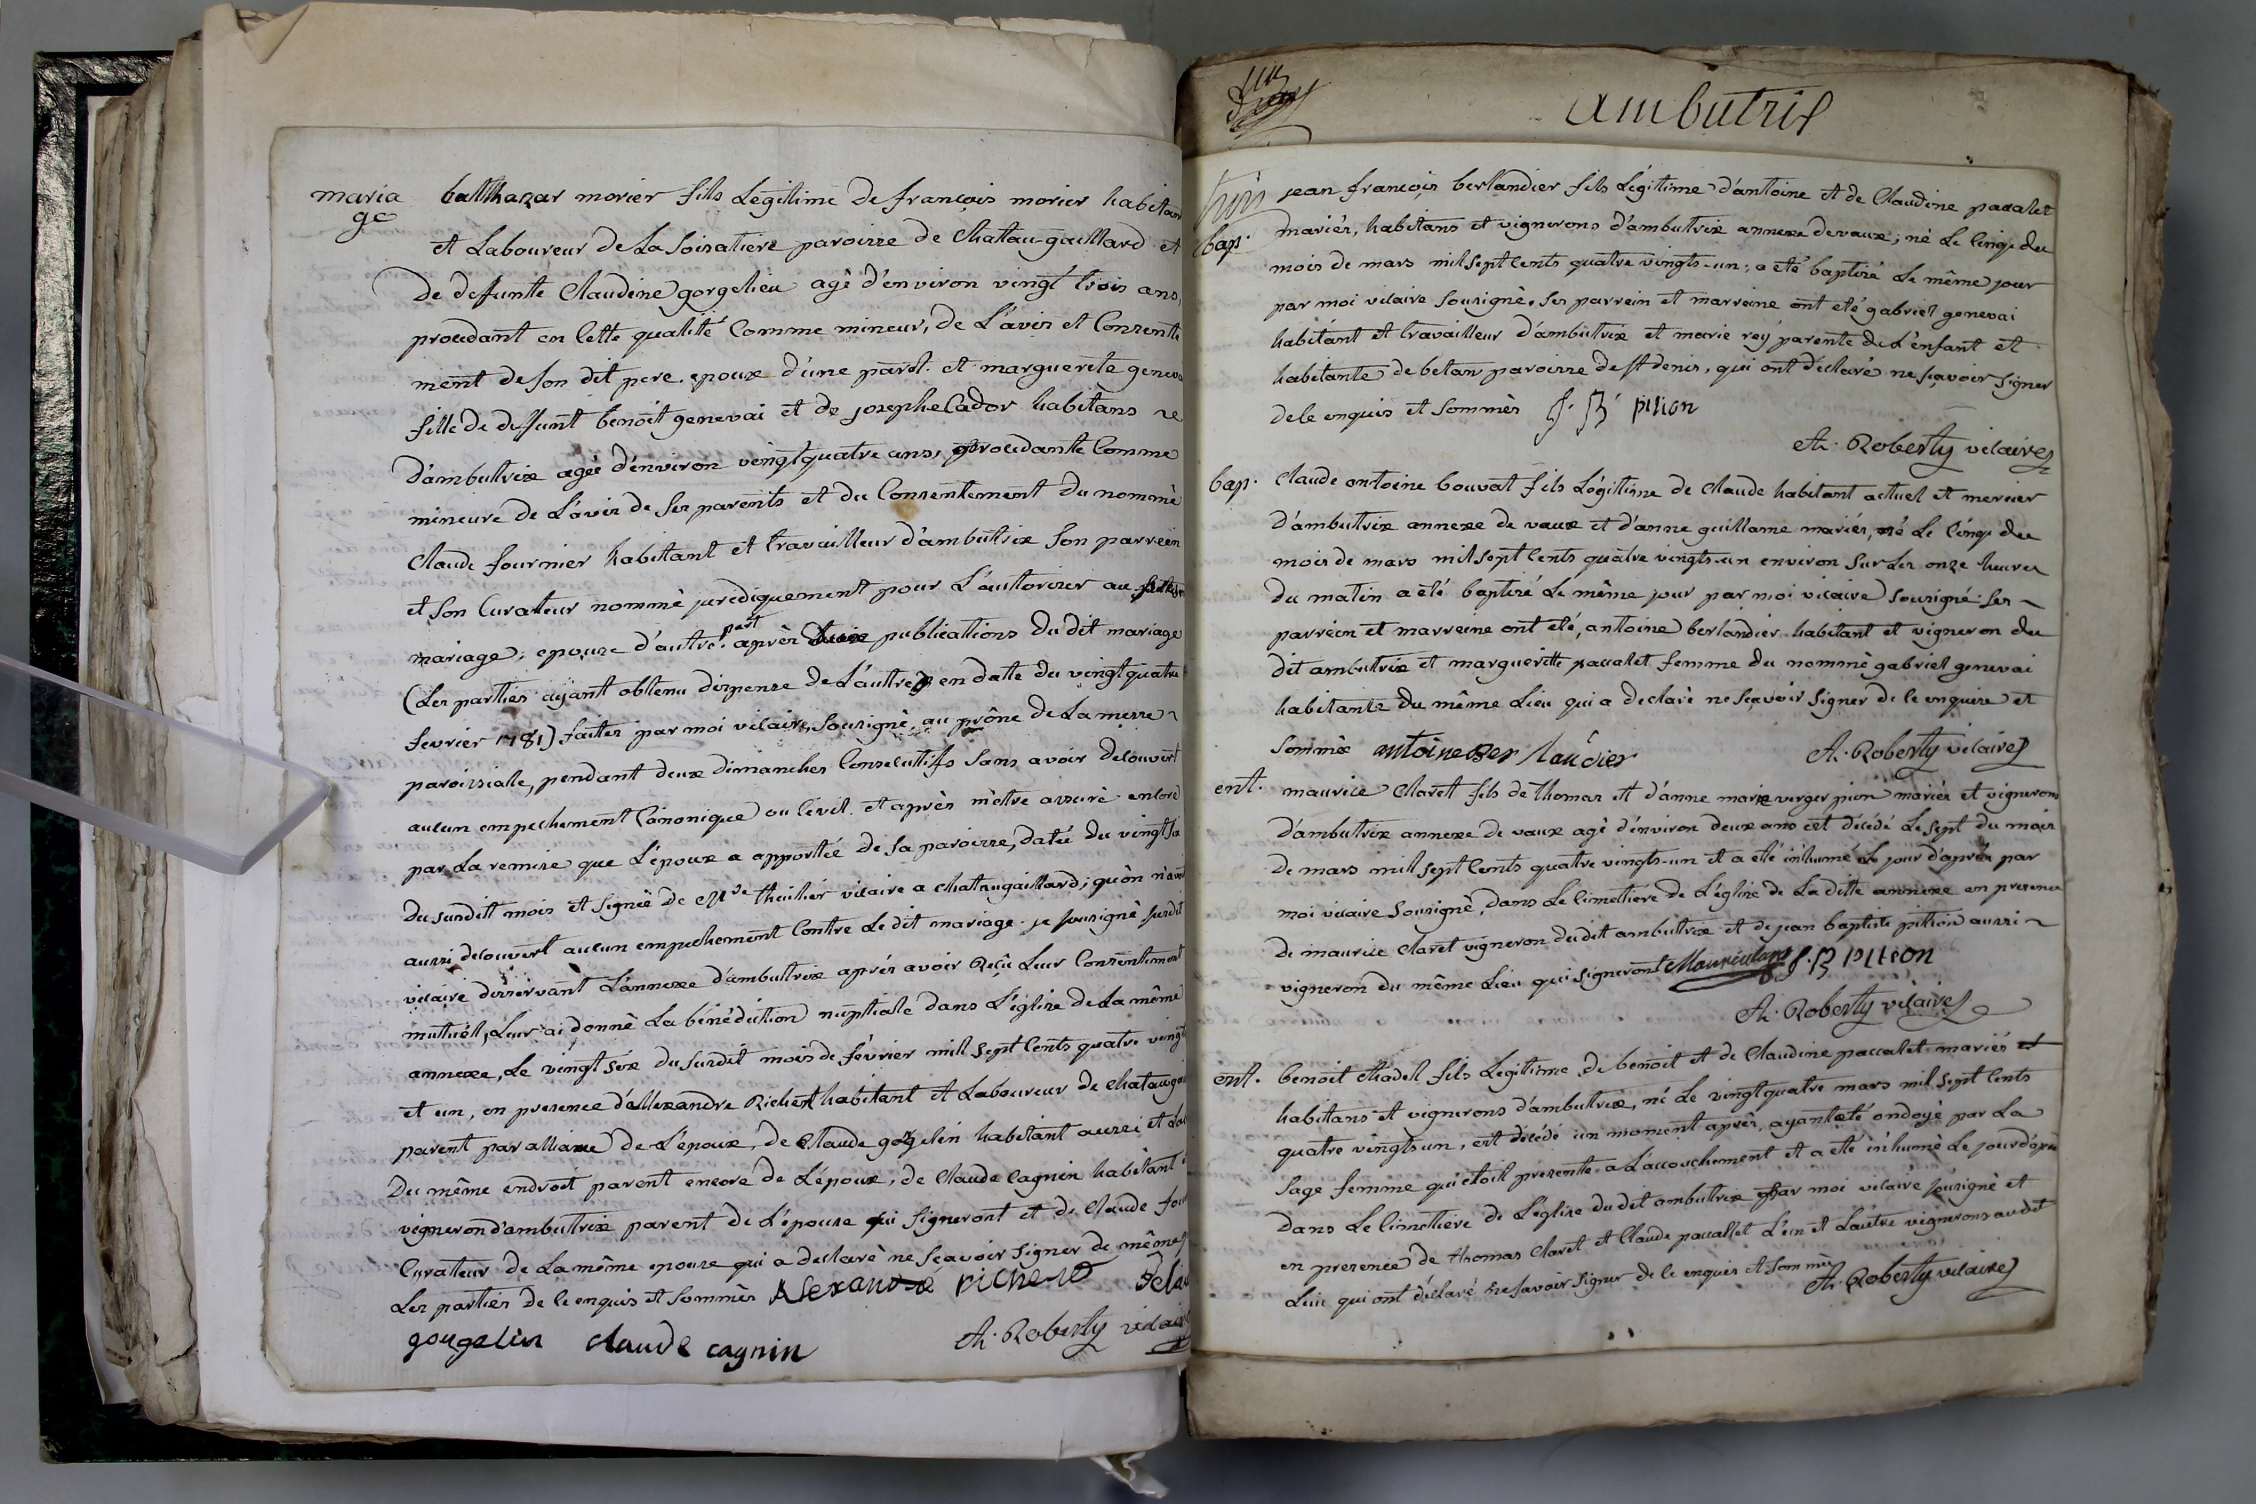 maria
ge
balthazar morier fils Légitime de françois morier habitant
et Laboureur de La Soiratiere paroisse de Chatau-gaillard et
de defunte Claudine gorgelieu agé d'environ vingt trois ans,
procedant en cette qualité Comme mineur, de L'avis et Consente
ment de Son dit pere. epoux d'une part. et marguerite geneva
fille de defunt benoit genevai et de josephe Cador habitans
d'ambutrix agée d'environ vingtquatre ans, procedante Comme
mineure de L'avis de Ses parents et du Consentement du nommé
Claude fournier habitant et travailleur d'ambutrix Son parrein
et Son Curateur nommé juridiquement pour L'autoriser au
mariage; epouse d'autre part après deux publications du dit mariage
(Les parties ayant obtenu dispense de L'autre) en date du vingtquatre
fevrier 1781) faites par moi vicaire, Sousigné, au prône de La messe
paroissialle, pendant deux dimanches Consecutifs Sans avoir decouvert
aucun empechement Canonique ou Civil. et après m'être assuré encore
par La remise que L'époux a apportée de Sa paroisse, datée du vingt
du susdit mois et Signée de thuilier vicaire a chataugaillard; qu'on n'avoit
aussi decouvert aucun empechement Contre Le dit mariage. je Sousigné Susdit
vicaire desservant L'annexe d'ambutrix après avoir Reçu Leur Consentement
mutuél, Leur ai donné La bénédiction nuptiale dans L'église de La même
annexe, Le vingt Six du Susdit mois de février mil Sept Cents quatre vingt
et un, en presence d'allexandre Richert habitant et Laboureur de Chataugai
parent par alliance de L'époux, de Claude gozgelin habitant aussi et Lab
du même endroit parent encore de L'époux, de Claude Cagnin habitant
vigneron d'ambutrix parent de L'épouse qui Signeront et de Claude four
Curateur de La même epouse qui a declaré ne Sçavoir Signer de même
Les parties de Ce enquis et Sommés Alexandre Richero
gougelin claude cagnin
A. Roberty vicaire
ambutrix
trois
bap.
jean françois berlandier fils Légitime d'antoine et de Claudine pacalet
mariés, habitans et vignerons d'ambutrix annexe de vaux; né Le Cinq du
mois de mars mil sept Cents quatre vingts-un; a été baptisé Le même jour
par moi vicaire Sousigné. Ses parrein et marreine ont eté gabriel genevai
habitant et travailleur d'ambutrix et marie rey parente de L'enfant et
habitante de betan paroisse de St denis, qui ont declaré ne Sçavoir Signer
de Ce enquis et Sommés J. B. pition
A. Roberty vicaire
bap.
Claude antoine bouvat fils Légitime de Claude habitant actuel et mercier
d'ambutrix annexe de vaux et d'anne guillame mariés, né Le Cinq du
mois de mars mil sept Cents quatre vingts-un environ Sur Les onze heures
du matin a été baptisé Le même jour par moi vicaire Sousigné. Ses
parrein et marreine ont eté, antoine berlandier habitant et vigneron du
dit ambutrix et marguerite paccalet femme du nommé gabriel genevai
habitante du même Lieu qui a declaré ne Sçavoir Signer de Ce enquise et
Sommée antoine ber landier
A. Roberty vicaire
ent.
maurice Claret fils de Thomas et d'anne marie verger pion mariés et vignerons
d'ambutrix annexe de vaux agé d'environ deux ans est décédé Le Sept du mois
de mars mil sept Cents quatre vingts-un et a été inhumé Le jour d'après par
moi vicaire Sousigné, dans Le Cimetiere de L'église de La ditte annexe en presence
de maurice Claret vigneron dudit ambutrix et de jean baptiste pition aussi
vigneron du même Lieu qui Signeront Mauriclaret J. B pition
A. Roberty vicaire
ent.
benoit Chadel fils Legitime de benoit et de Claudine paccalet mariés et
habitans et vignerons d'ambutrix, né Le vingtquatre mars mil Sept Cents
quatre vingts un, est décédé un moment après, ayant eté ondoyé par La
Sage femme qui étoit presente a L'accouchement et a eté inhumé Le jour d'après
dans Le Cimetiere de L'église du dit ambutrix par moi vicaire Sousigné et
en presence de thomas Claret et Claude paccallet L'un et L'autre vignerons audit
Lieu qui ont déclaré ne Savoir Signer de Ce enquis et Sommés
A. Roberty vicaire